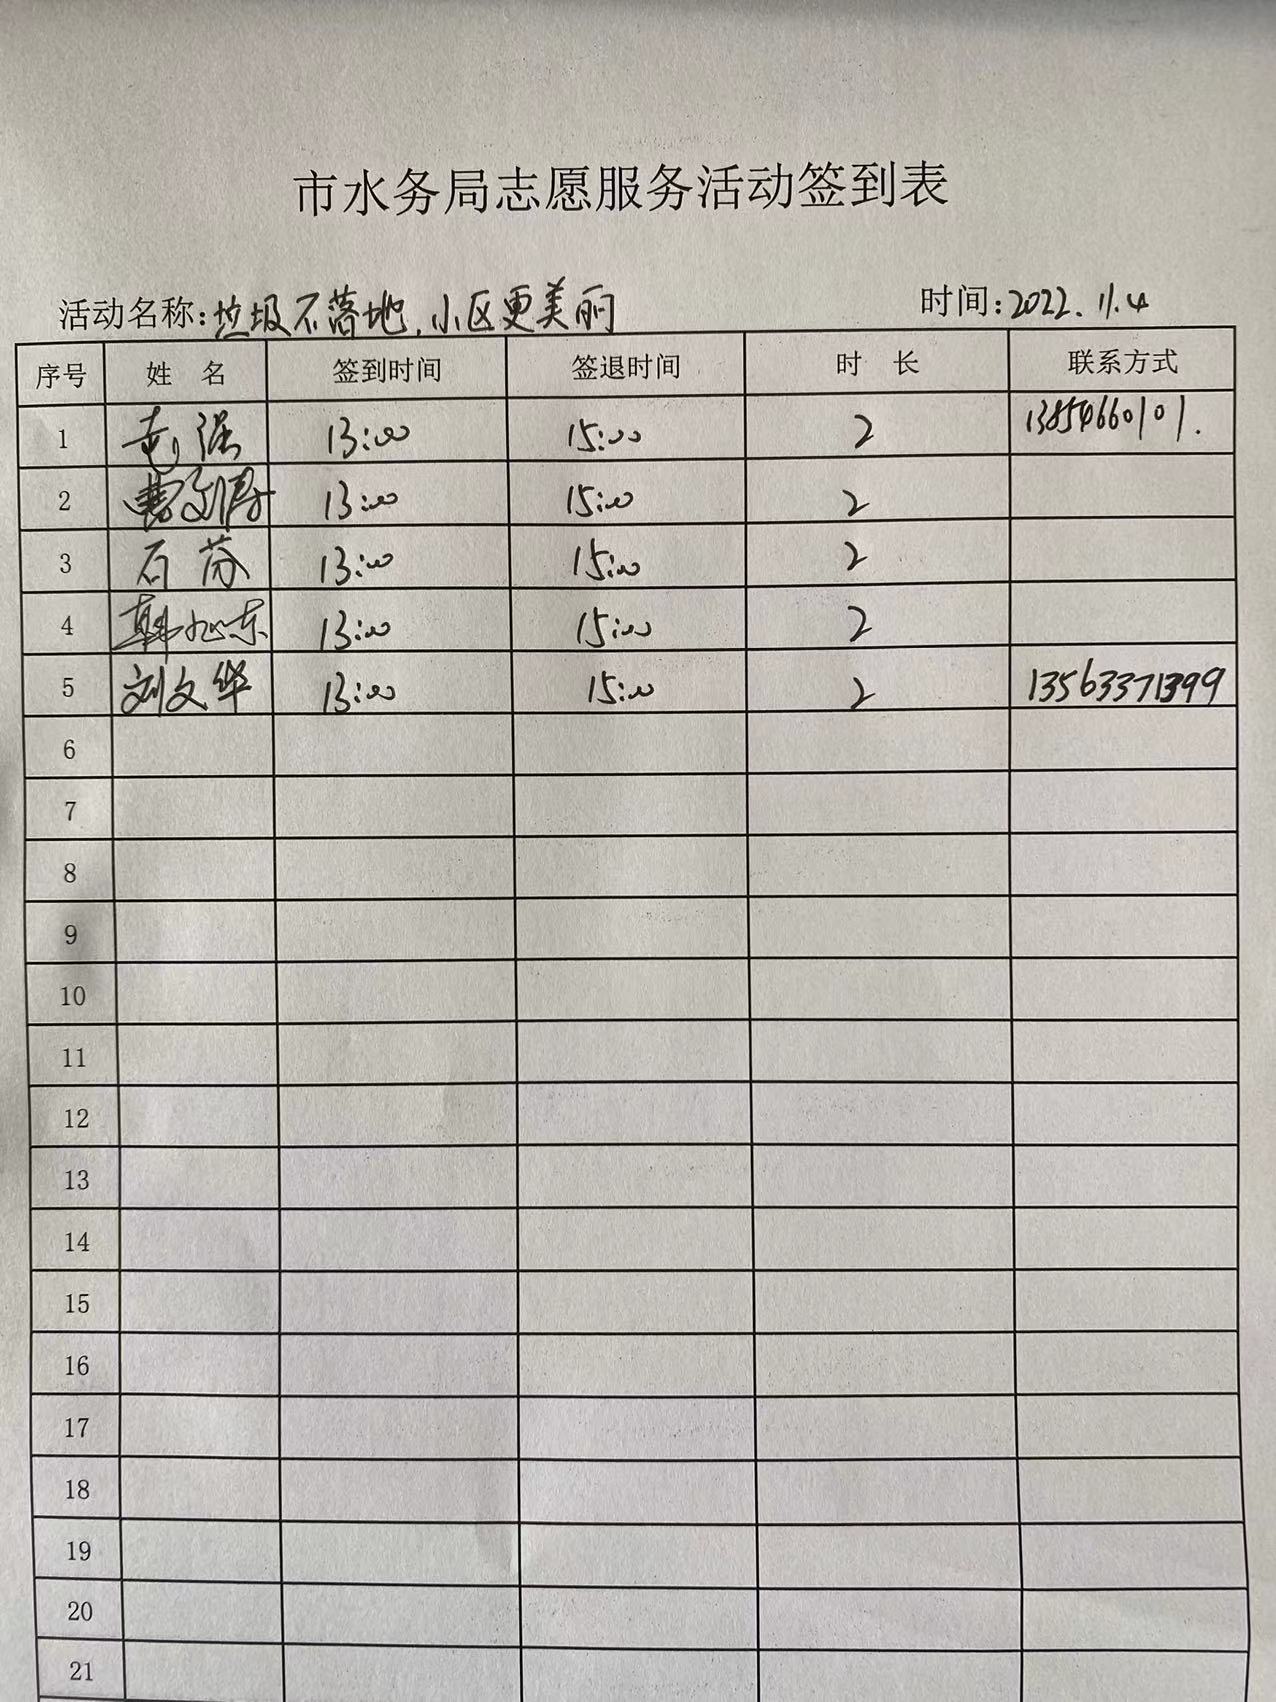 市水务局志愿服务活动签到表
活动名称:垃圾不落地,小区更美丽 时间:2022.11.4
序号 姓 名 签到时间 签退时间 时 长 联系方式
1 强 13:00 15:00 2 13854660101.
2 曹文 13:00 15:00 2
3 石芬 13:00 15:00 2
4 韩旭东 13:00 15:00 2
5 刘文华 13:00 15:00 2 13563371399
6
7
8
9
10
11
12
13
14
15
16
17
18
19
20
21